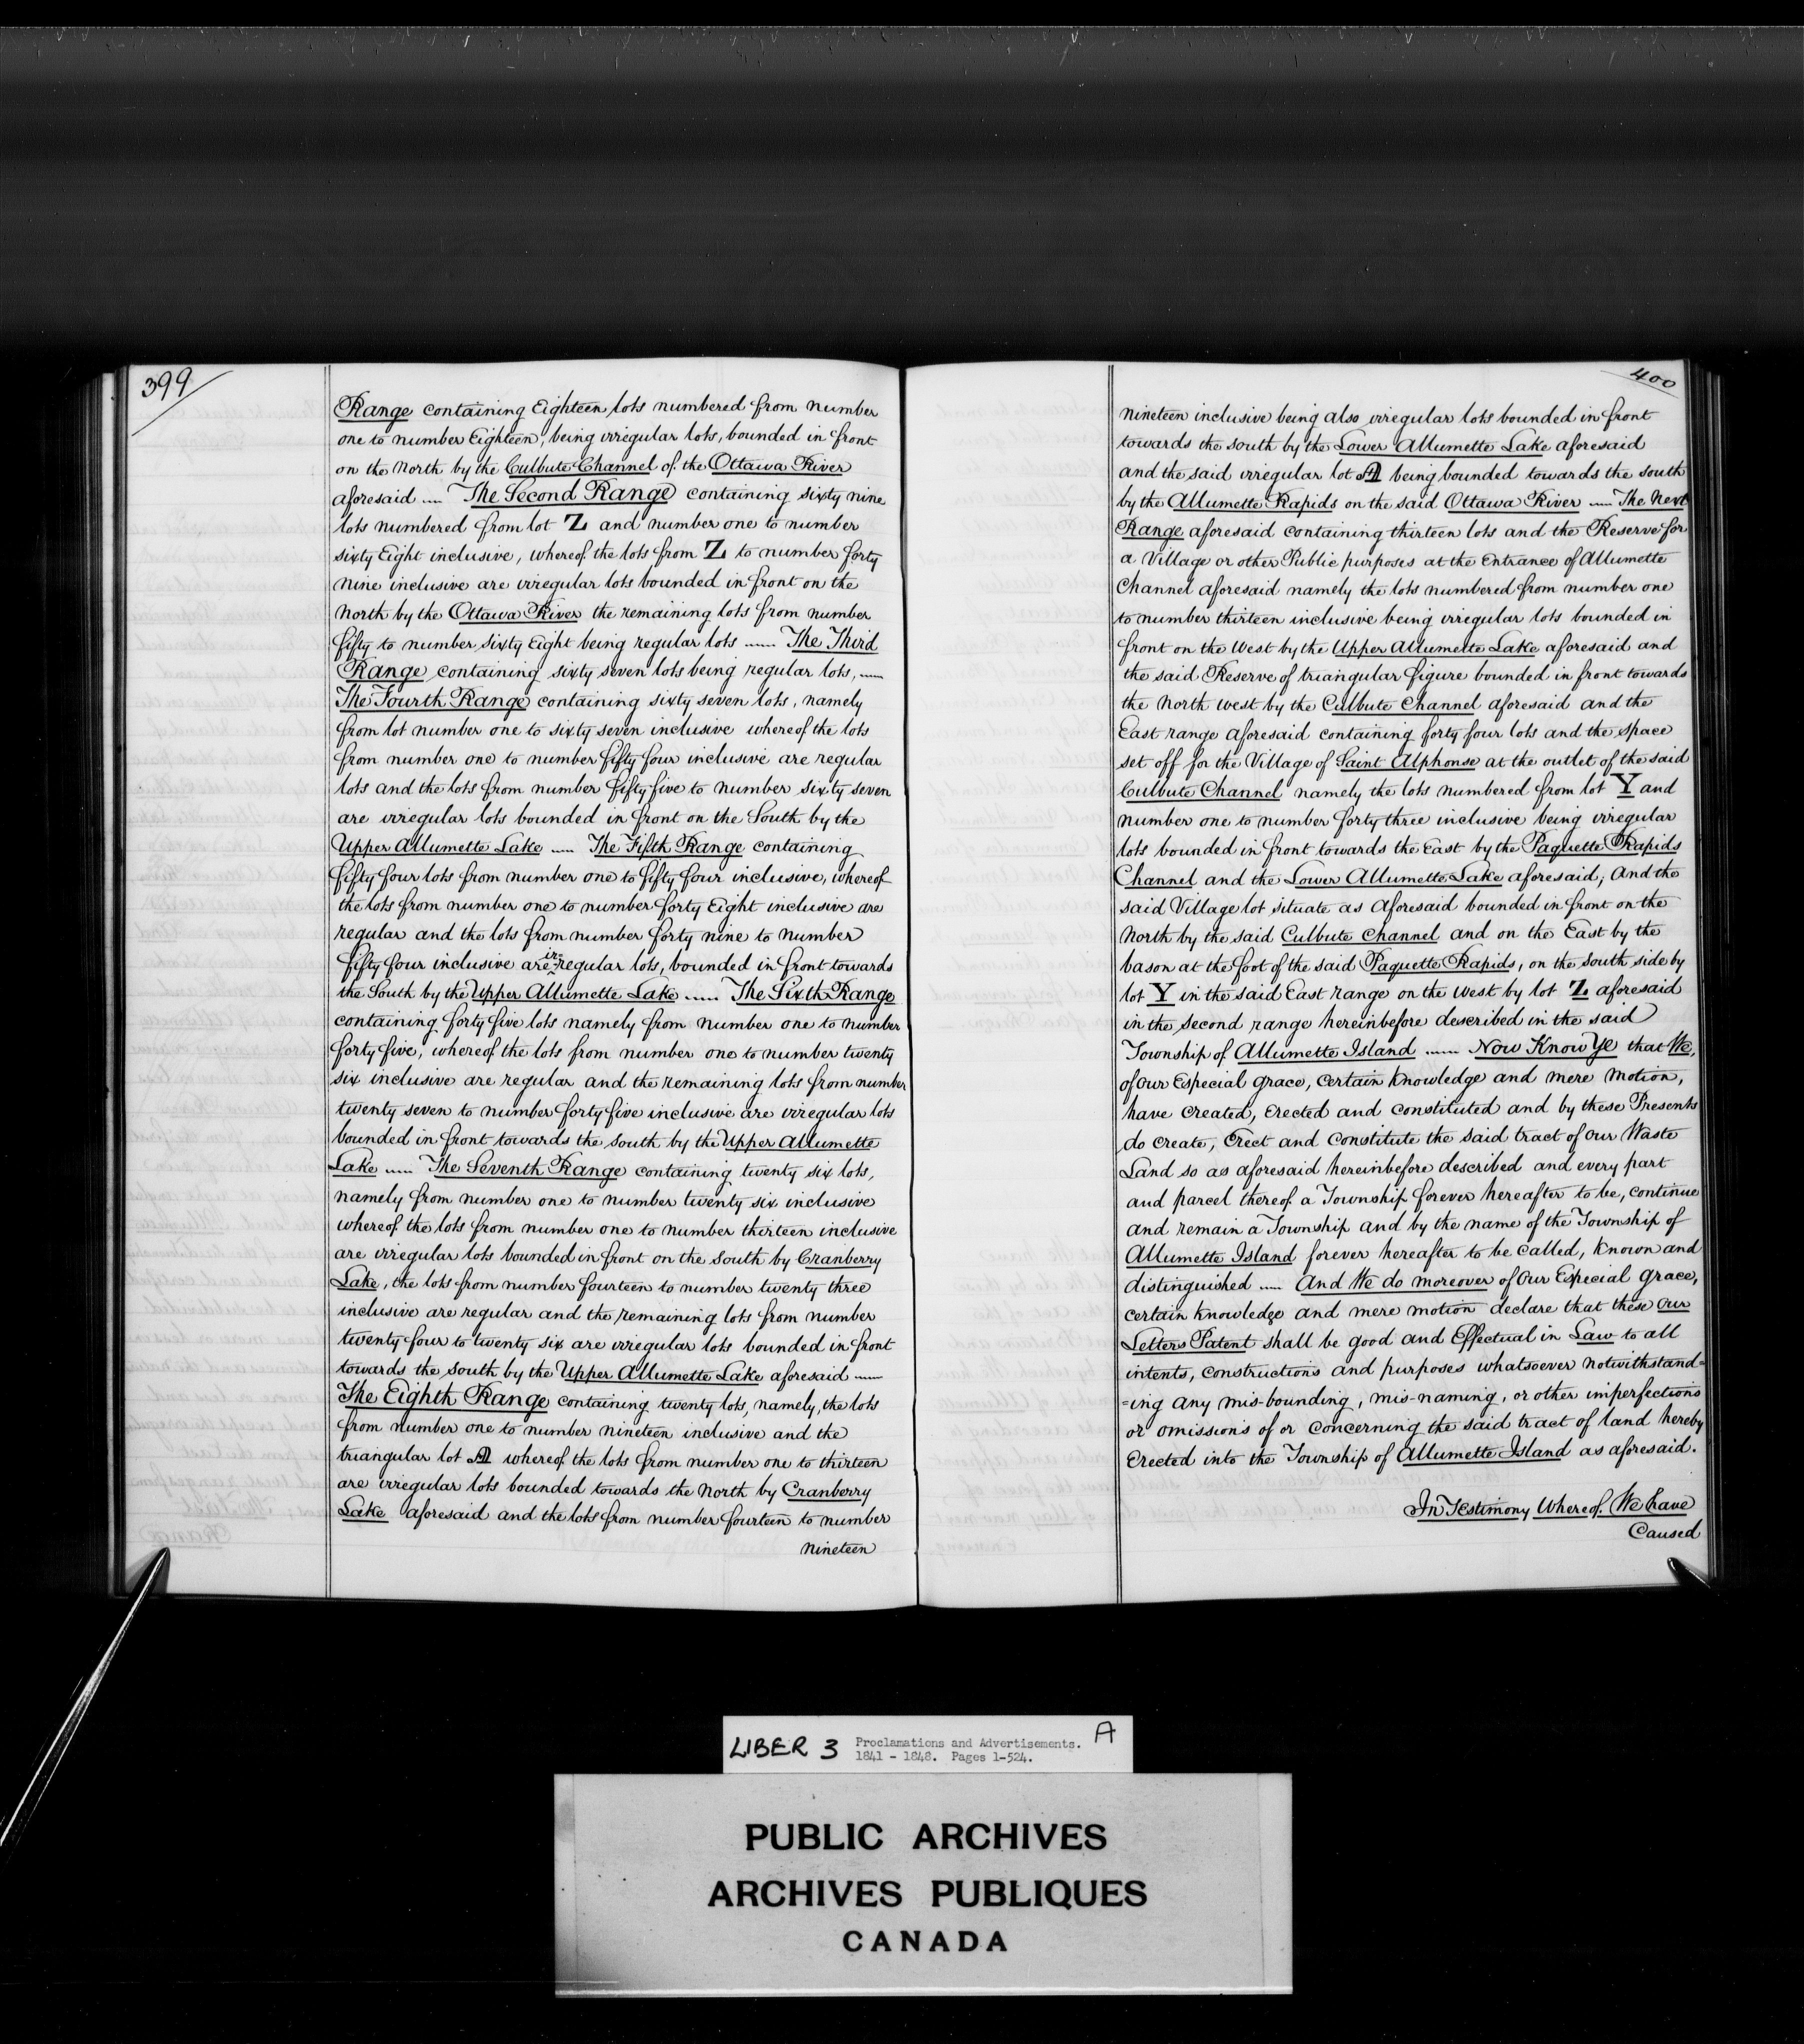 399
Range containing Eighteen lots numbered from number
one to number Eighteen, being irregular lots, bounded in front
on the North by the Culbute Channel of the Ottawa River
aforesaid .... The Second Range containing sixty nine
lots numbered from lot Z and number one to number
sixty Eight inclusive, whereof the lots from Z to number forty
nine inclusive are irregular lots bounded in front on the
North by the Ottawa River the remaining lots from number
fifty to number sixty Eight being regular lots ..... The Third
Range containing sixty seven lots being regular lots, ....
The Fourth Range containing sixty seven lots, namely
from lot number one to sixty seven inclusive whereof the lots
from number one to number fifty four inclusive are regular
lots and the lots from number fifty five to number sixty seven
are irregular lots bounded in front on the South by the
Upper Allumette Lake .... The Fifth Range containing
fifty four lots from number one to fifty four inclusive, whereof
the lots from number one to number forty Eight inclusive are
regular and the lots from number forty nine to number
fifty four inclusive are ir-regular lots, bounded in front towards
the South by the Upper Allumette Lake ..... The Sixth Range
containing forty five lots namely from number one to number
forty five, whereof the lots from number one to number twenty
six inclusive are regular and the remaining lots from number
twenty seven to number forty five inclusive are irregular lots
bounded in front towards the south by the Upper Allumette
Lake .... The Seventh Range containing twenty six lots,
namely from number one to number twenty six inclusive
whereof the lots from number one to number thirteen inclusive
are irregular lots bounded in front on the south by Cranberry
Lake, the lots from number fourteen to number twenty three
inclusive are regular and the remaining lots from number
twenty four to twenty six are irregular lots bounded in front
towards the south by the Upper Allumette Lake aforesaid ....
The Eighth Range containing twenty lots, namely, the lots
from number one to number nineteen inclusive and the
triangular lot A whereof the lots from number one to thirteen
are irregular lots bounded towards the North by Cranberry
Lake aforesaid and the lots from number fourteen to number
nineteen
400
nineteen inclusive being also irregular lots bounded in front
towards the south by the Lower Allumette Lake aforesaid
and the said irregular lot A being bounded towards the south
by the Allumette Rapids on the said Ottawa River .... The Next
Range aforesaid containing thirteen lots and the Reserve for
a Village or other Public purposes at the Entrance of Allumette
Channel aforesaid namely the lots numbered from number one
to number thirteen inclusive being irregular lots bounded in
front on the West by the Upper Allumette Lake aforesaid and
the said Reserve of triangular figure bounded in front towards
the North west by the Culbute Channel aforesaid and the
East range aforesaid containing forty four lots and the space
set off for the Village of Saint Alphonse at the outlet of the said
Culbute Channel namely the lots numbered from lot Y and
number one to number forty three inclusive being irregular
lots bounded in front towards the East by the Paquette Rapids
Channel and the Lower Allumette Lake aforesaid; And the
said Village lot situate as Aforesaid bounded in front on the
North by the said Culbute Channel and on the East by the
bason at the foot of the said Paquette Rapids, on the south side by
lot Y in the said East range on the West by lot Z aforesaid
in the second range hereinbefore described in the said
Township of Allumette Island ..... Now Know Ye that We,
of our Especial grace, certain knowledge and mere motion,
have created, Erected and constituted and by these Presents
do create, Erect and Constitute the said tract of our Waste
Land so as aforesaid hereinbefore described and every part
and parcel thereof a Township forever hereafter to be, continue
and remain a Township and by the name of the Township of
Allumette Island forever hereafter to be called, known and
distinguished .... And We do moreover of Our Especial grace,
certain knowledge and mere motion declare that these our
Letters Patent shall be good and Effectual in Law to all
intents, constructions and purposes whatsoever notwithstand=
=ing any mis-bounding, mis-naming, or other imperfections
or omissions of or concerning the said tract of land hereby
Erected into the Township of Allumette Island as aforesaid.
In Testimony Whereof We have
Caused
LIBER 3 Proclamations and Advertisements. A
1841 - 1848. Pages 1-524.
PUBLIC ARCHIVES
ARCHIVES PUBLIQUES
CANADA